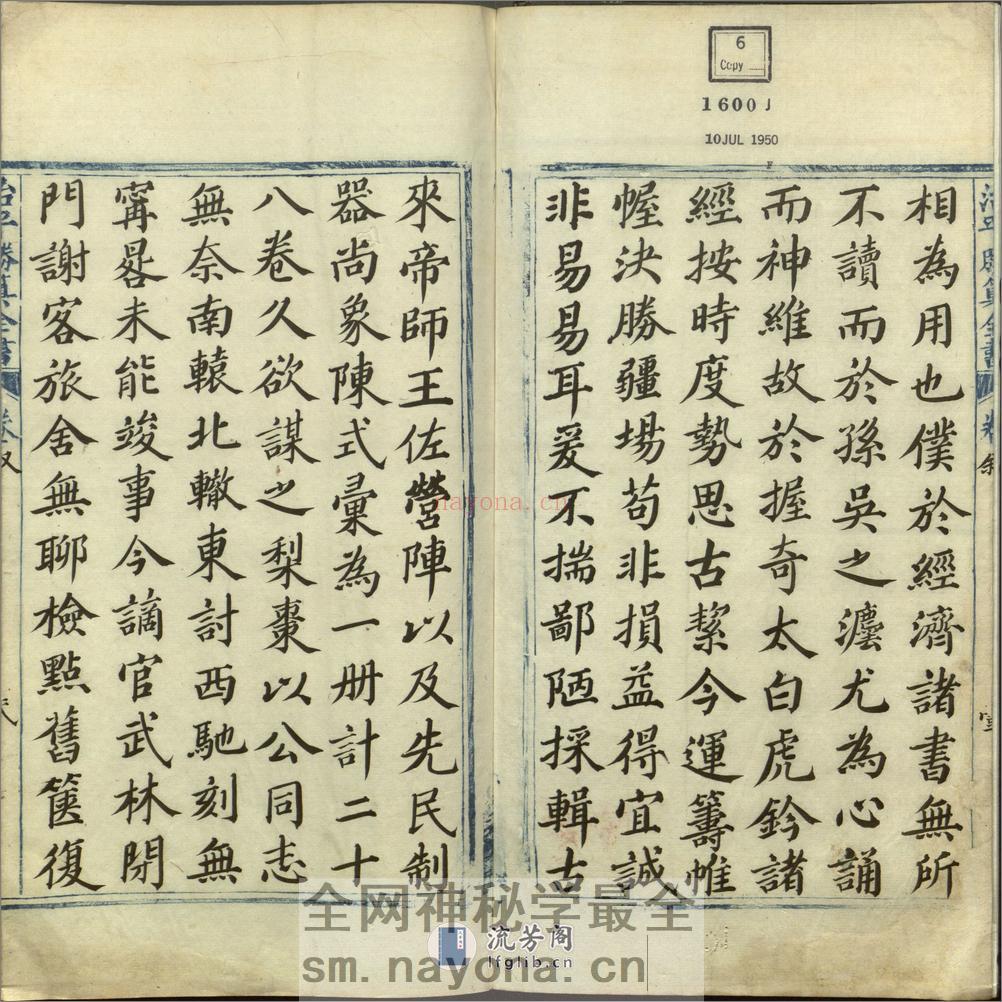 6
Copy
1600 J
10 JUL 1950
F
相為用也僕於經濟諸書無所
不讀而於孫吳之灋尤為心誦
而神維故於握奇太白虎鈐諸
經按時度勢思古絜今運籌帷
幄決勝疆場苟非損益得宜誠
非易易耳爰不揣鄙陋採輯古
來帝師王佐營陣以及先民制
器尚象陳式彙為一册計二十
八卷久欲謀之梨棗以公同志
無奈南轅北轍東討西馳刻無
甯晷未能竣事今謫官武林閉
門謝客旅舍無聊檢點舊篋復
nayona.cn
全网神秘学最全
流芳阁
lfglib.cn
sm.nayona.cn